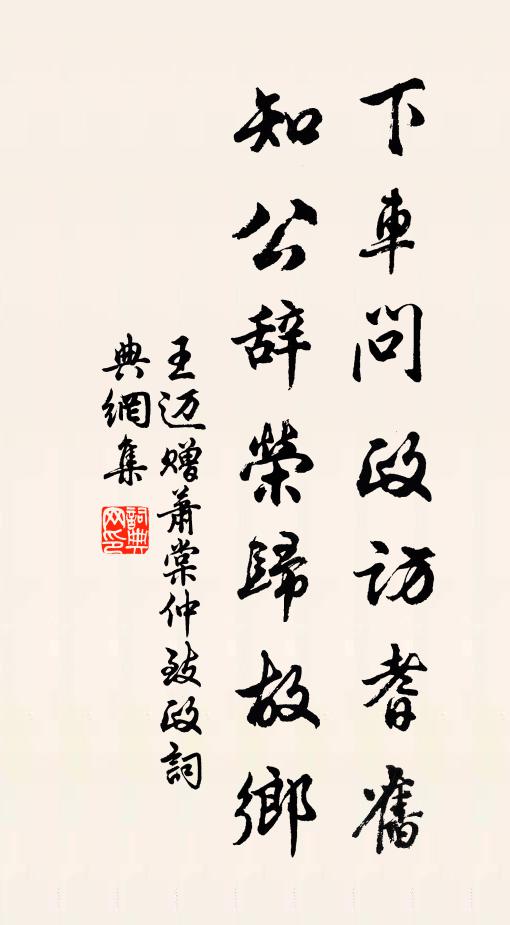 下車問政訪耆舊
知公辞榮歸故鄉
王迈赠蕭棠仲致政詞
典網集
詞典
网印